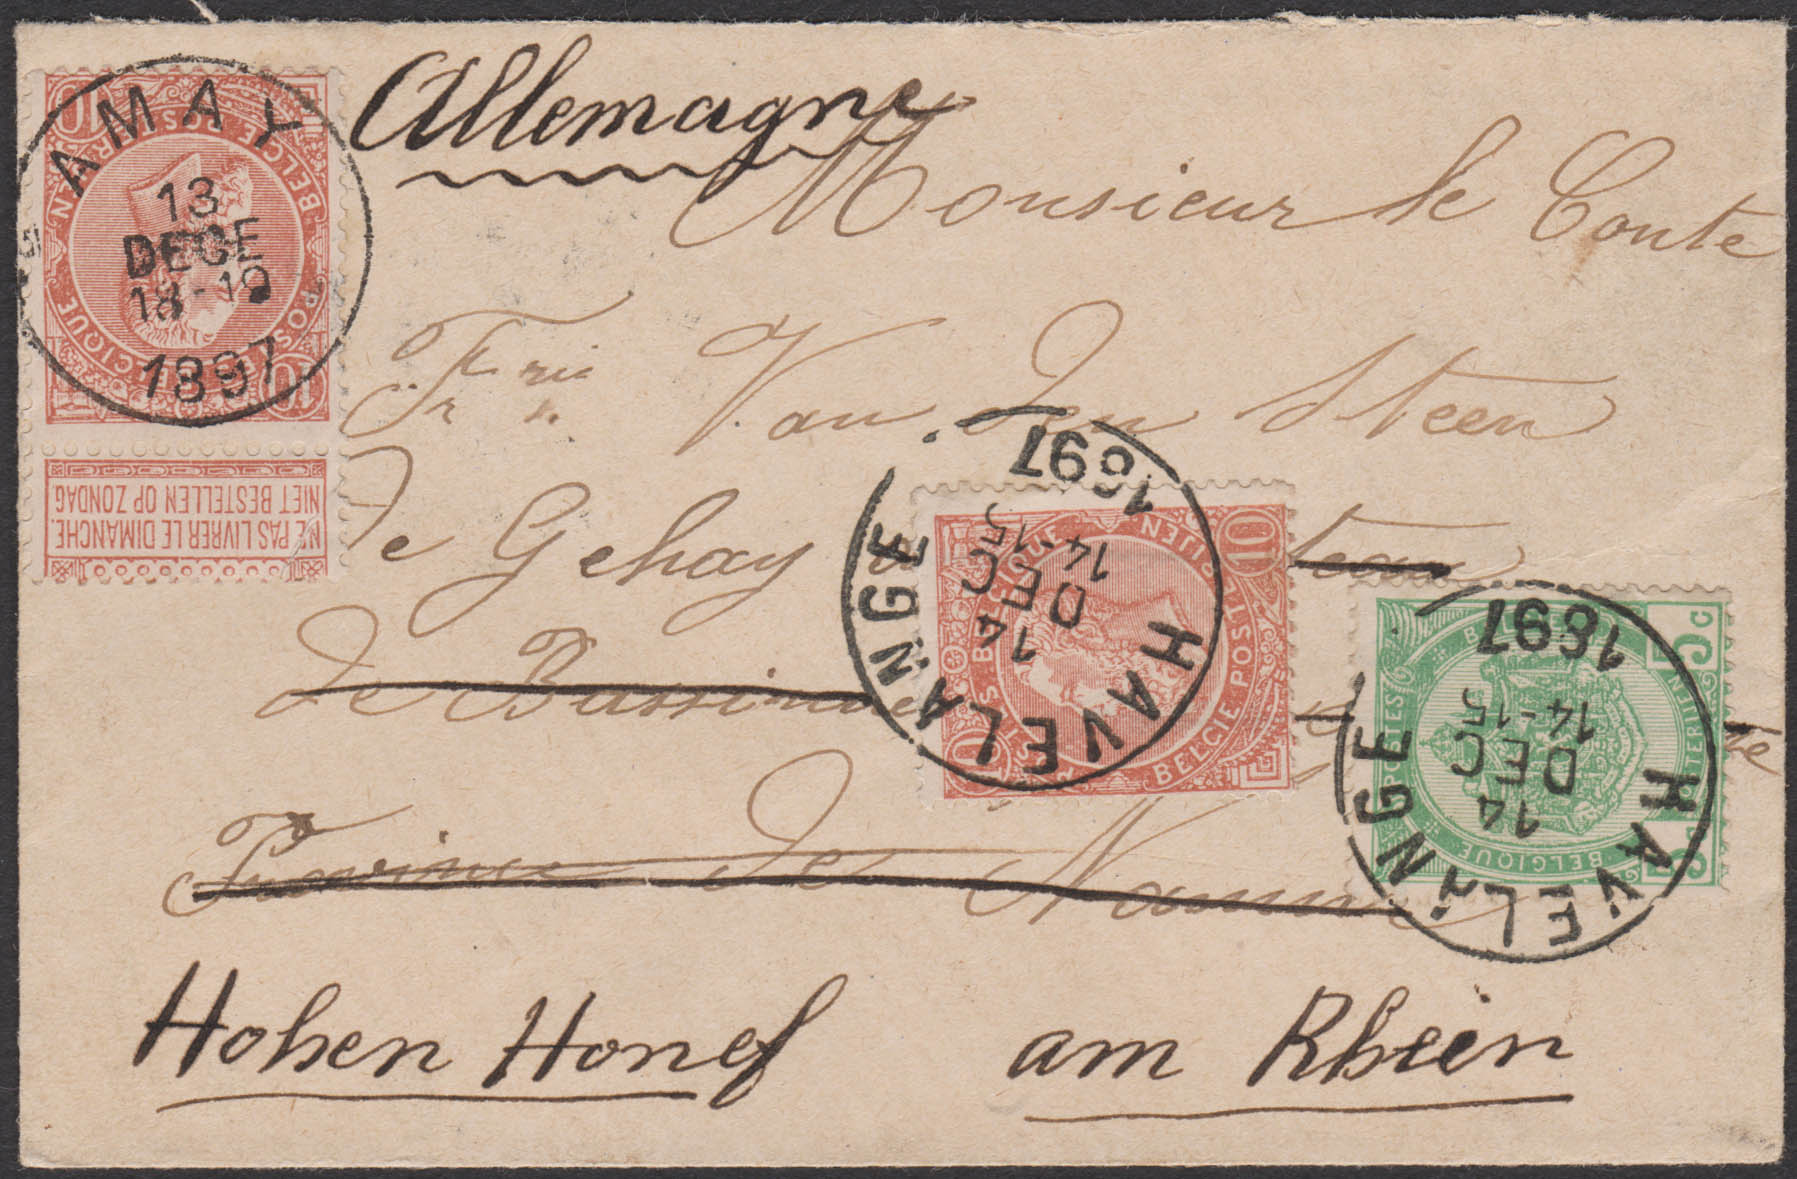 Allemagne
Monsieur le Conte
Van den Steen
de Gehay
de
Province de Namur
Hohen Honef am Rhein
AMAY
13
DECE
18-19
1897
10 BELGIE POSTERIJEN
POSTES BELGIQUE 10
NE PAS LIVRER LE DIMANCHE.
NIET BESTELLEN OP ZONDAG
HAVELANGE
14
DEC
14-15
1897
10 POSTES BELGIQUE
BELGIE POSTERIJEN 10
HAVELANGE
14
DEC
14-15
1897
5 C
POSTES BELGIQUE